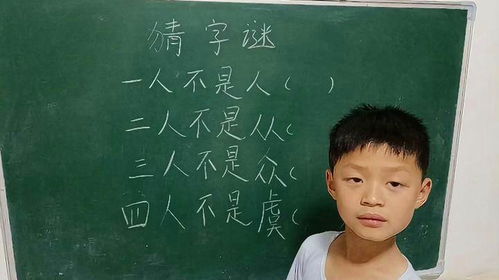 猜字谜
一人不是人( )
二人不是从(
三人不是众(
四人不是虞(